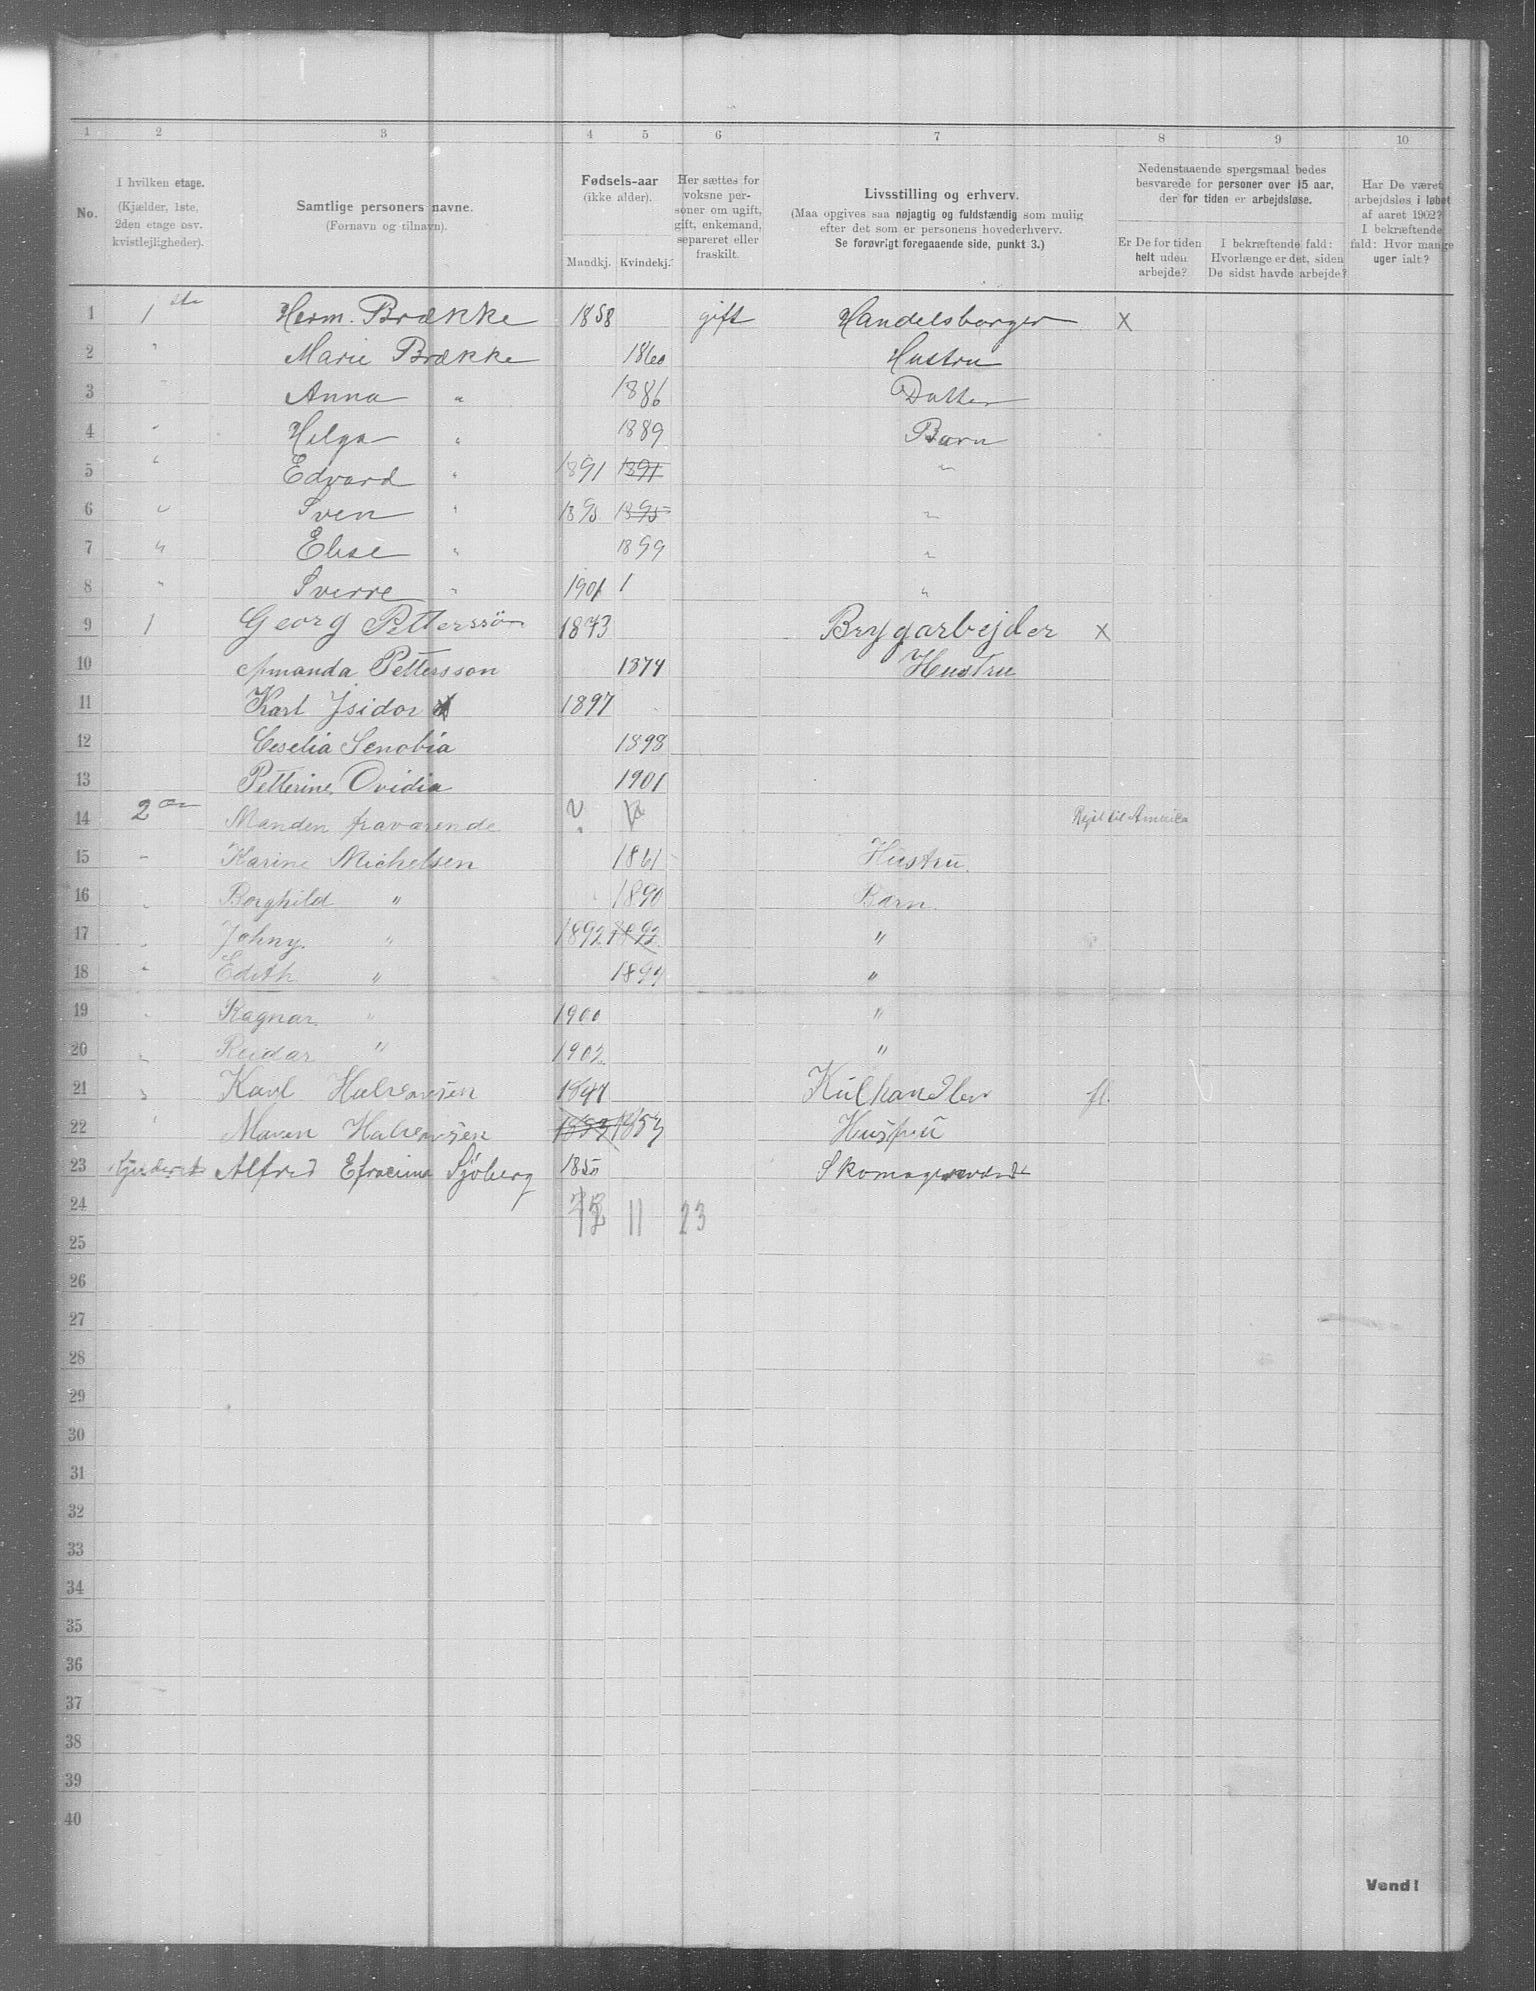 1 2 3 4 5 6 7 8 9 10
No.
I hvilken etage.
(Kjælder, 1ste,
2den etage osv.
kvistlejligheder).
Samtlige personers navne.
(Fornavn og tilnavn).
Fødsels-aar
(ikke alder).
Mandkj. Kvindekj.
Her sættes for
voksne per-
soner om ugift,
gift, enkemand,
separeret eller
fraskilt.
Livsstilling og erhverv.
(Maa opgives saa nøjagtig og fuldstændig som mulig
efter det som er personens hovederhverv.
Se forøvrigt foregaaende side, punkt 3.)
Nedenstaaende spørgsmaal bedes
besvarede for personer over 15 aar,
der for tiden er arbejdsløse.
Er De for tiden
helt uden
arbejde?
I bekræftende fald:
Hvorlænge er det, siden
De sidst havde arbejde?
Har De været
arbejdsløs i løbet
af aaret 1902?
I bekræftende
fald: Hvor mange
uger ialt?
1 1ste Herm. Brække 1858 gift Handelsborger x
2 " Marie Brække 1860 Hustru
3 " Anna " 1886 Datter
4 " Helga " 1889 Barn
5 " Edvard " 1891 1891 "
6 " Sven " 1895 1895 "
7 " Elise " 1899 "
8 " Sverre " 1901 1 "
9 1 Georg Petterssøn 1873 Brygarbejder x
10 Amanda Pettersson 1874 Hustru
11 Karl Isidor 1897
12 Ceselia Senobia 1898
13 Petterine Ovidia 1901
14 2den Manden fraværende ? Rejst til America
15 " Karine Michelsen 1861 Hustru.
16 " Borghild " 1890 Barn.
17 " Johny. " 1892 1892 "
18 " Edith " 1894 "
19 " Ragnar " 1900 "
20 " Reidar " 1902 "
21 " Karl Halvorsen 1847 Kulhandler fl.
22 " Maren Halvorsen 1853 1853 Husfru
23 Alfred Efraeima Sjöberg 1850
24 12 11 23
25
26
27
28
29
30
31
32
33
34
35
36
37
38
39
40
Vend!